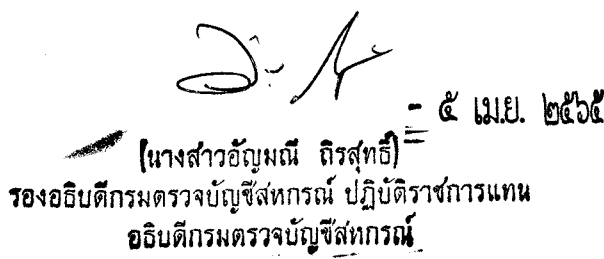 - ๕ เม.ย. ๒๕๖๕
(นางสาวอัญมณี ถิรสุทธิ์)
รองอธิบดีกรมตรวจบัญชีสหกรณ์ ปฏิบัติราชการแทน
อธิบดีกรมตรวจบัญชีสหกรณ์